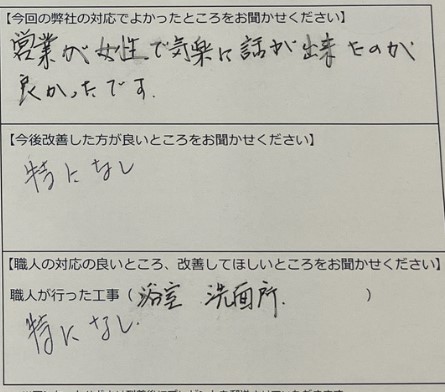 【今回の弊社の対応でよかったところをお聞かせください】
営業が女性で気楽に話が出来たのが
良かったです.
【今後改善した方が良いところをお聞かせください】
特になし
【職人の対応の良いところ、改善してほしいところをお聞かせください】
職人が行った工事（浴室 洗面所. ）
特になし.